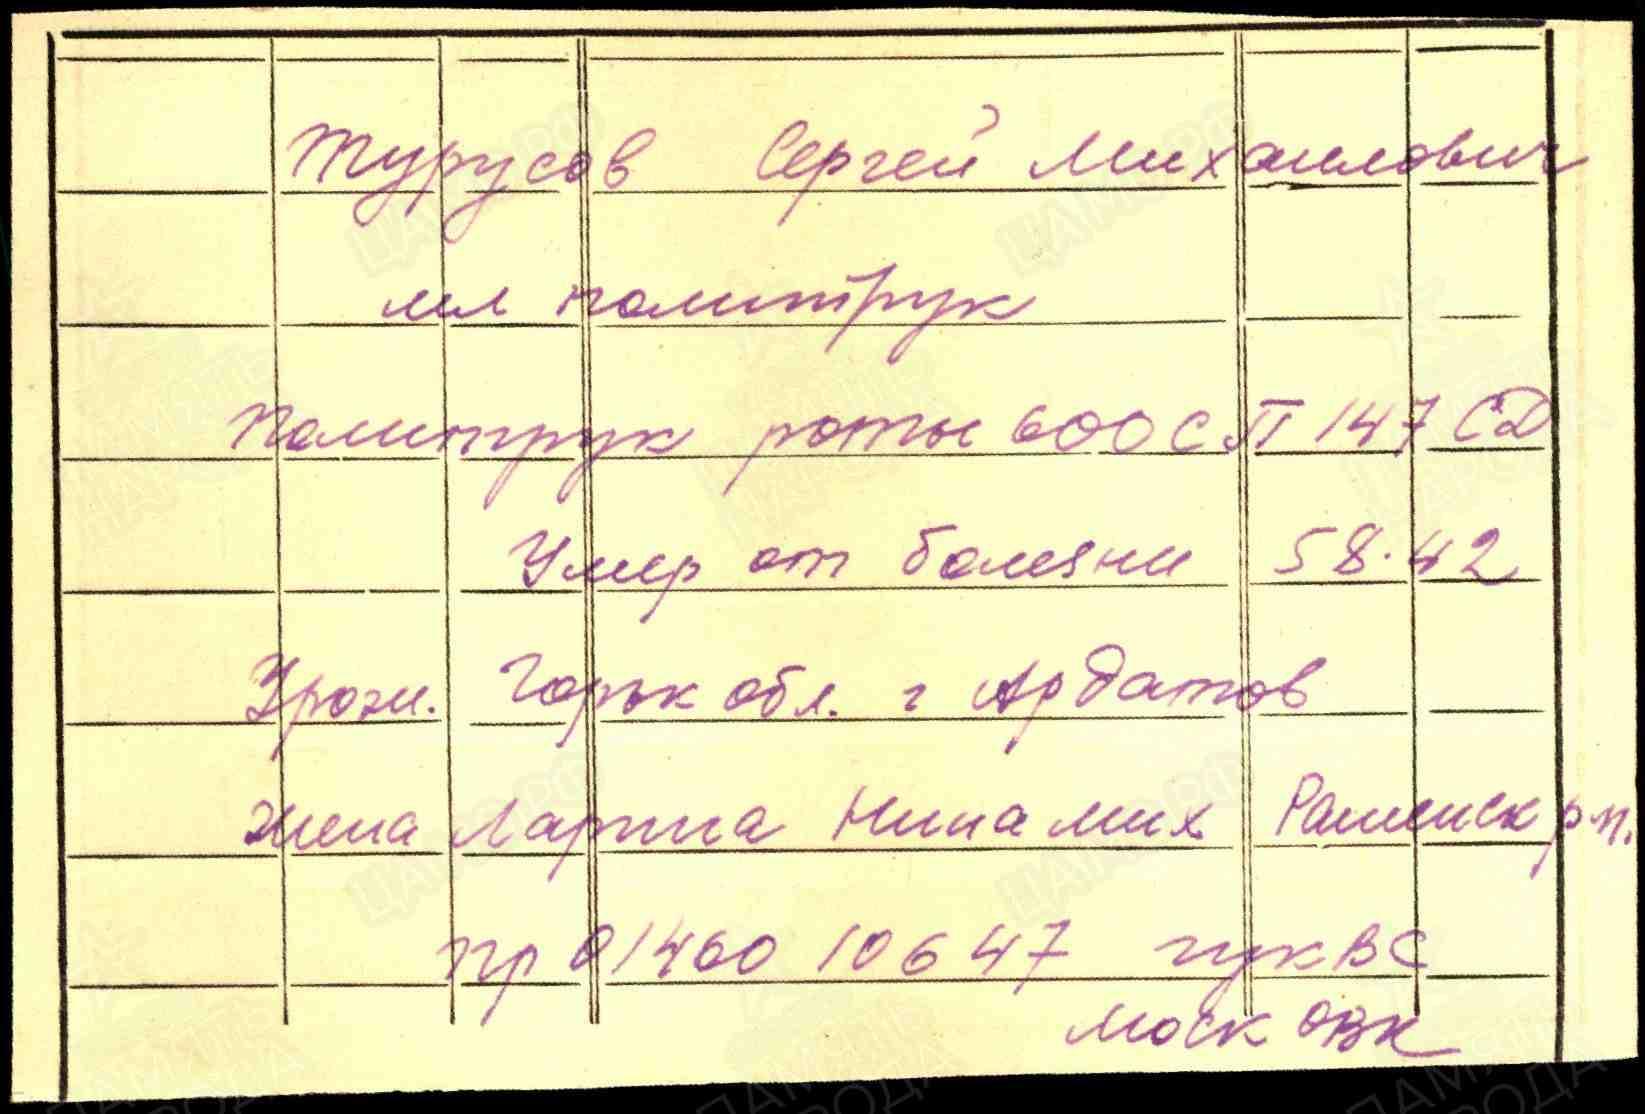 Турусов Сергей Михайлович
мл политрук
Политрук роты 600 СП 147 СД
Умер от болезни 5 8.42
Урож. Горьк обл. г Ардатов
жена Ларина Нина мих Раменск р-н.
пр 01460 10 6 47 гук ВС
моск ОВК